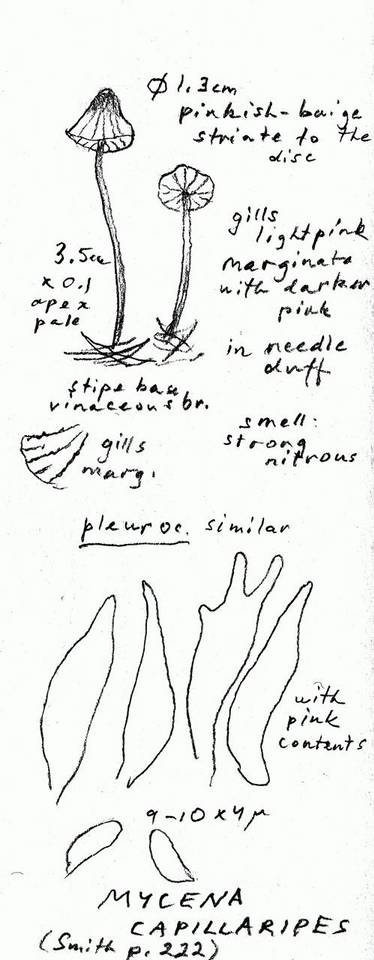 Ø 1.3cm
pinkish-baige
striate to the
disc
gills
light pink
marginate
with darker
pink
3.5cm
x 0.1
apex
pale
in needle
duff
stipe base
vinaceous br.
smell:
strong
nitrous
gills
marg.
pleuroc. similar
with
pink
contents
9-10 x 4 µ
MYCENA
CAPILLARIPES
(Smith p. 222)